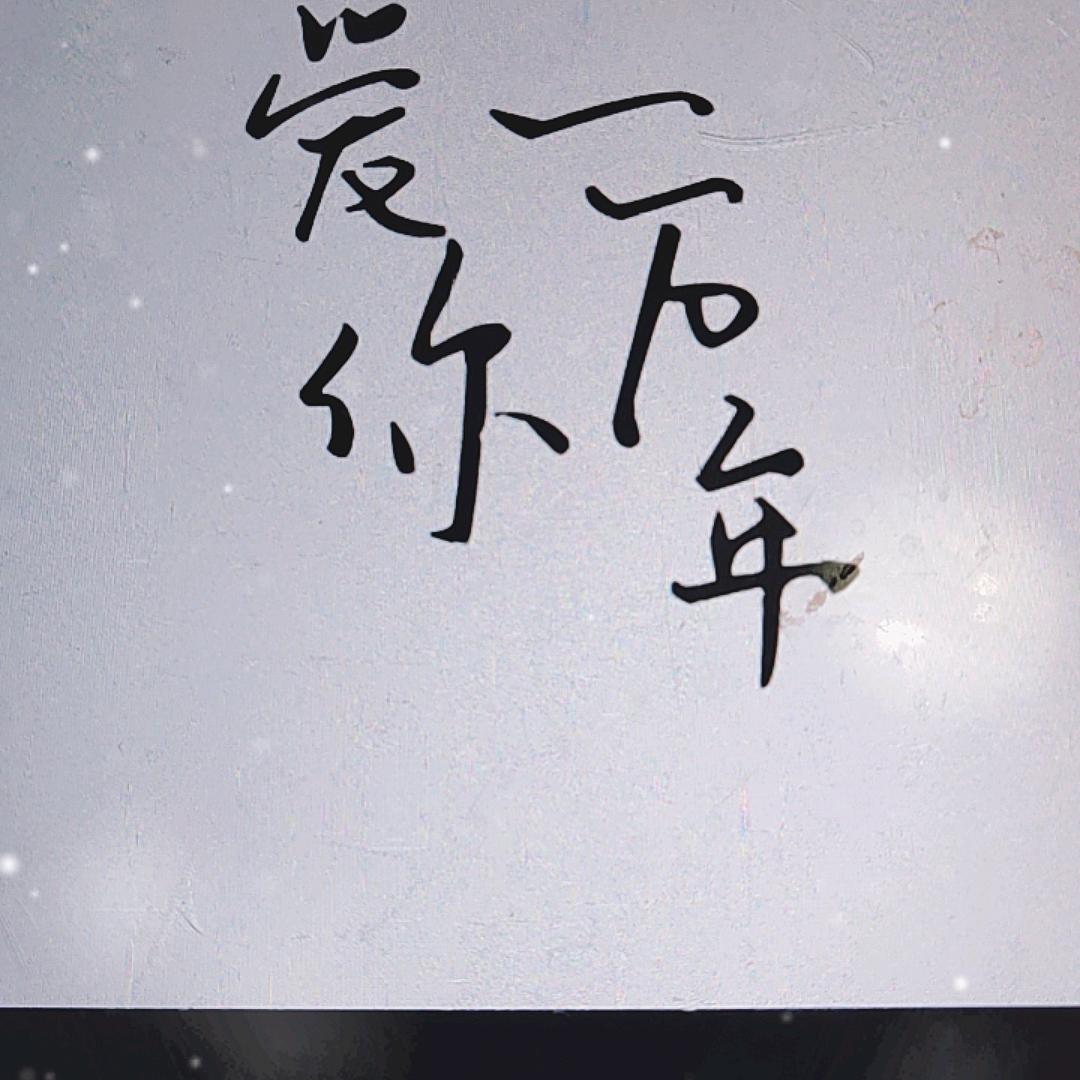 爱你
一万年